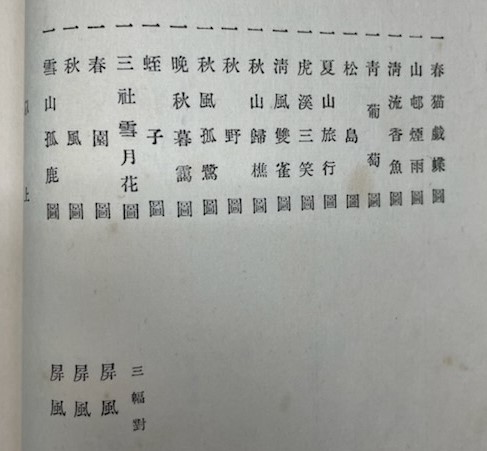 一 春猫戯蝶圖
一 山邨煙雨圖
一 清流香魚圖
一 青葡萄圖
一 松島圖
一 夏山旅行圖
一 虎溪三笑圖
一 淸風雙雀圖
一 秋山歸樵圖
一 秋野圖
一 秋風孤鷺圖
一 晩秋暮靄圖
一 蛭子圖
一 三社雪月花圖 三幅對
一 春園圖 屛風
一 秋風圖 屛風
一 雪山孤鹿圖 屛風